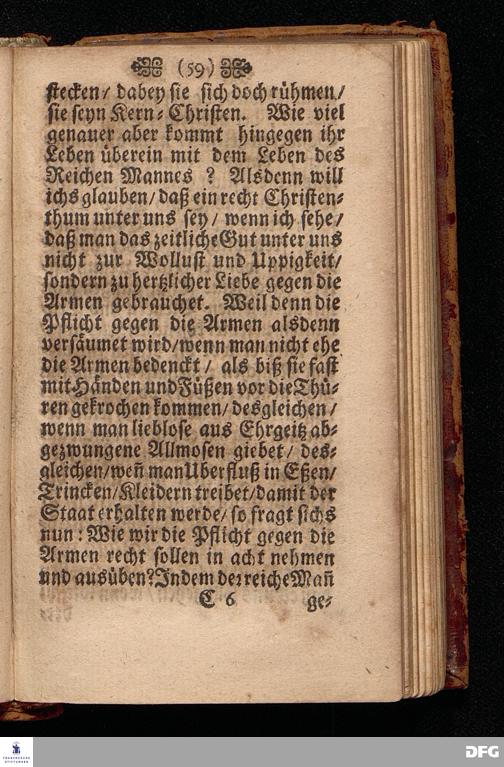 (59)
stecken/ dabey sie sich doch rühmen/
sie seyn Kern-Christen. Wie viel
genauer aber kommt hingegen ihr
Leben überein mit dem Leben des
Reichen Mannes ? Alsdenn will
ichs glauben/ daß ein recht Christen-
thum unter uns sey/ wenn ich sehe/
daß man das zeitliche Gut unter uns
nicht zur Wollust und Uppigkeit/
sondern zu hertzlicher Liebe gegen die
Armen gebrauchet. Weil denn die
Pflicht gegen die Armen alsdenn
versäumet wird/ wenn man nicht ehe
die Armen bedenckt/ als biß sie fast
mit Händen und Füßen vor die Thü-
ren gekrochen kommen/ desgleichen/
wenn man lieblose aus Ehrgeitz ab-
gezwungene Allmosen giebet/ des-
gleichen/ weñ man Uberfluß in Eßen/
Trincken/ Kleidern treibet/ damit der
Staat erhalten werde/ so fragt sichs
nun : Wie wir die Pflicht gegen die
Armen recht sollen in acht nehmen
und ausüben? Indem der reiche Mañ
C 6 ge-
FRANCKESCHE
STIFTUNGEN
DFG